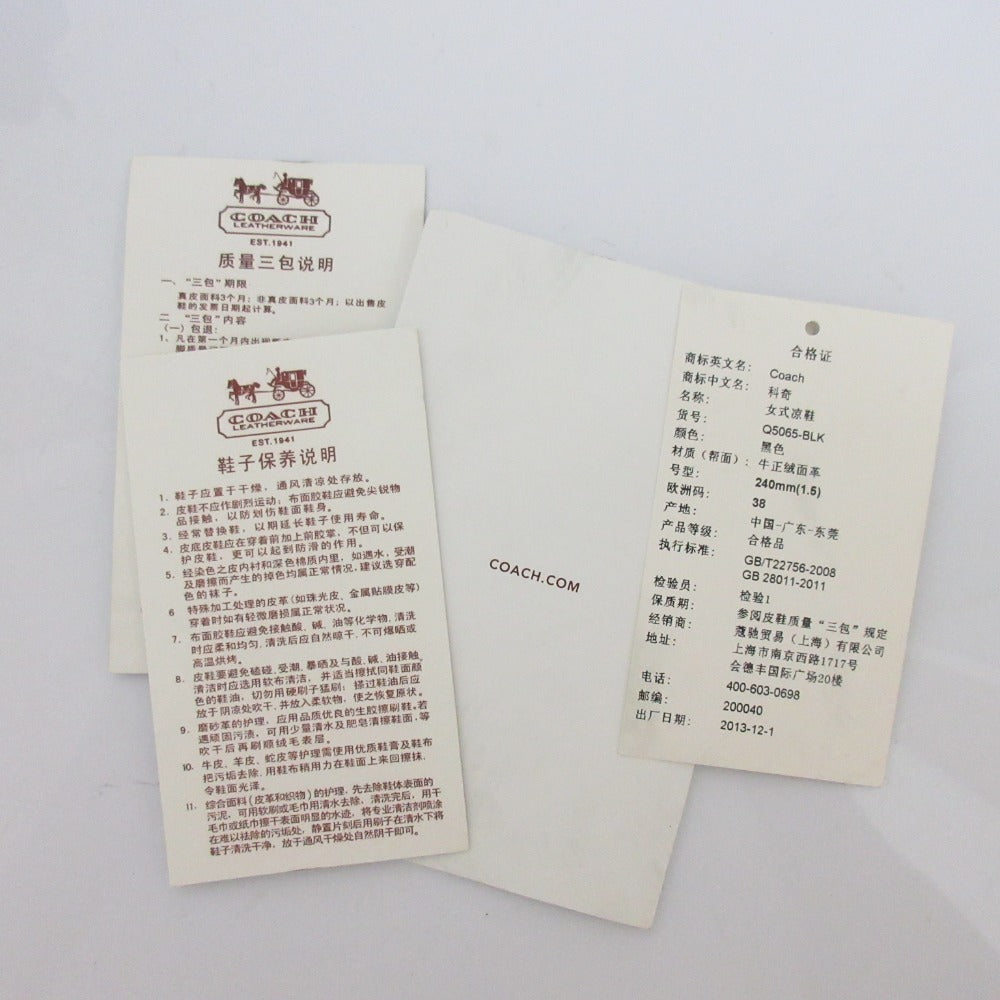 COACH
LEATHERWARE
EST.1941
质量三包说明
一、“三包”期限
真皮面料3个月；非真皮面料3个月；以出售皮
鞋的发票日期起计算。
二 “三包”内容
（一）包退：
1、凡在第一个月内出现
COACH
LEATHERWARE
EST.1941
鞋子保养说明
1、鞋子应置于干燥，通风清凉处存放。
2、皮鞋不应作剧烈运动；布面胶鞋应避免尖锐物
品接触，以防划伤鞋面鞋身。
3、经常替换鞋，以期延长鞋子使用寿命。
4、皮底皮鞋应在穿着前加上前胶掌，不但可以保
护皮鞋，更可以起到防滑的作用。
5、经染色之皮内衬和深色棉质内里，如遇水，受潮
及磨擦而产生的掉色均属正常情况，建议选穿配
色的袜子。
6 特殊加工处理的皮革（如珠光皮、金属贴膜皮等）
穿着时如有轻微磨损属正常状况。
7、布面胶鞋应避免接触酸、碱、油等化学物，清洗
时应柔和均匀，清洗后应自然晾干，不可爆晒或
高温烘烤。
8、皮鞋要避免磕碰、受潮、暴晒及与酸、碱、油接触，
清洁时应选用软布清洁，并适当擦拭同鞋面颜
色的鞋油，切勿用硬刷子猛刷；搽过鞋油后应
放于阴凉处吹干，并放入柔软物，使之恢复原状。
9、磨砂革的护理，应用品质优良的生胶擦刷鞋。若
遇顽固污渍，可用少量清水及肥皂清擦鞋面，等
吹干后再刷顺绒毛表层。
10、牛皮、羊皮、蛇皮等护理需使用优质鞋膏及鞋布
把污垢去除，用鞋布稍用力在鞋面上来回擦抹，
令鞋面光泽。
11、综合面料（皮革和织物）的护理，先去除鞋体表面的
污泥，可用软刷或毛巾用清水去除，清洗完后，用干
毛巾或纸巾擦干表面明显的水迹，将专业清洁剂喷涂
在难以祛除的污垢处，静置片刻后用刷子在清水下将
鞋子清洗干净，放于通风干燥处自然阴干即可。
COACH.COM
合格证
商标英文名： Coach
商标中文名： 科奇
名称： 女式凉鞋
货号： Q5065-BLK
颜色： 黑色
材质（帮面）：牛正绒面革
号型： 240mm(1.5)
欧洲码： 38
产地： 中国-广东-东莞
产品等级： 合格品
执行标准： GB/T22756-2008
GB 28011-2011
检验员： 检验1
保质期： 参阅皮鞋质量“三包”规定
经销商： 蔻驰贸易（上海）有限公司
地址： 上海市南京西路1717号
会德丰国际广场20楼
电话： 400-603-0698
邮编： 200040
出厂日期： 2013-12-1